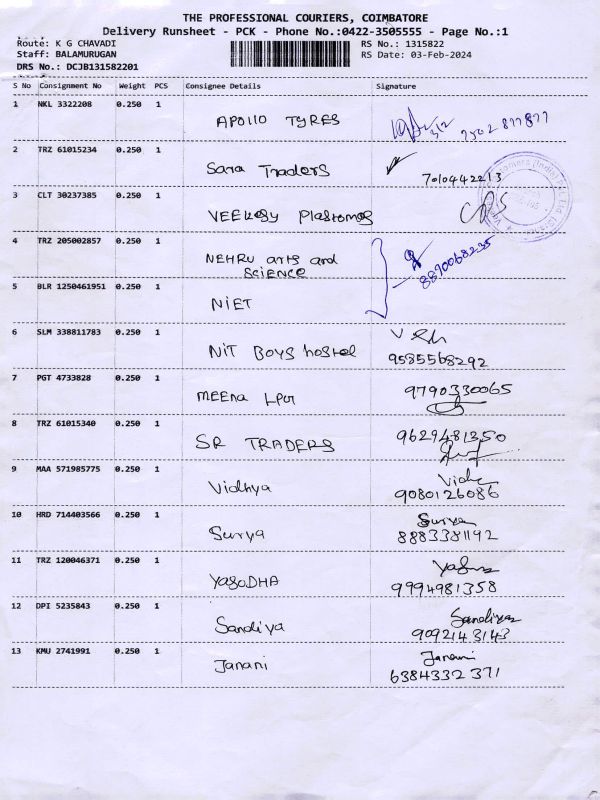 THE PROFESSIONAL COURIERS, COIMBATORE
Delivery Runsheet - PCK - Phone No.:0422-3505555 - Page No.:1
Route: K G CHAVADI
RS No.: 1315822
Staff: BALAMURUGAN
RS Date: 03-Feb-2024
DRS No.: DCJB131582201
S No Consignment No Weight PCS Consignee Details Signature
1 NKL 3322208 0.250 1 APOllO TYRES 3/2
2 TRZ 61015234 0.250 1 Sara Traders 7010442213
3 CLT 30237385 0.250 1
4 TRZ 205002857 0.250 1 NEHRU arts and science 8870068235
5 BLR 1250461951 0.250 1 NiET
6 SLM 338811783 0.250 1 NiT Boys hostel 9585568292
7 PGT 4733828 0.250 1 MEEna 9790330065
8 TRZ 61015340 0.250 1 SR TRADERS 9629481350
9 MAA 571985775 0.250 1 Vidhya 9080126086
10 HRD 714403566 0.250 1 Surya Surya 8883381192
11 TRZ 120046371 0.250 1 YASODHA 9994981358
12 DPI 5235843 0.250 1 Sandiya Sandiya 9092143143
13 KMU 2741991 0.250 1 Janani Janani 6384332371